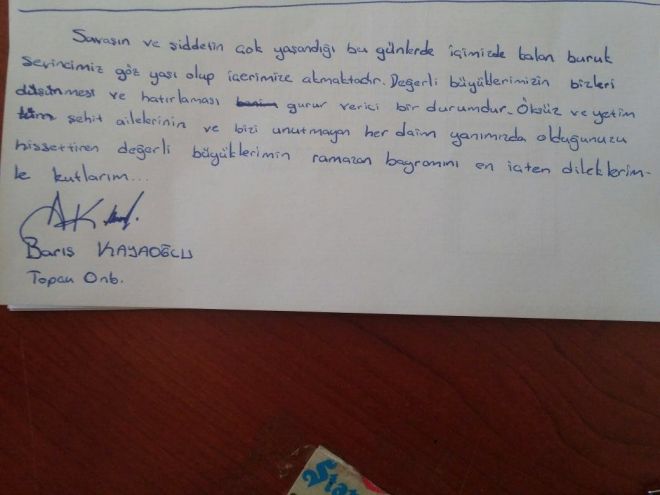 Savaşın ve şiddetin çok yaşandığı bu günlerde içimizde kalan buruk
sevincimiz göz yaşı olup içerimize akmaktadır. Değerli büyüklerimizin bizleri
düşünmesi ve hatırlaması gurur verici bir durumdur. Öksüz ve yetim
tüm şehit ailelerinin ve bizi unutmayan her daim yanımızda olduğunuzu
hissettiren değerli büyüklerimin ramazan bayramını en içten dileklerim-
le kutlarım...
Barış KAYAOĞLU
Topçu Onb.